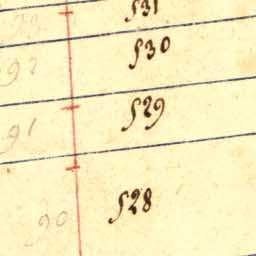 93 531
92 530
91 529
90 528